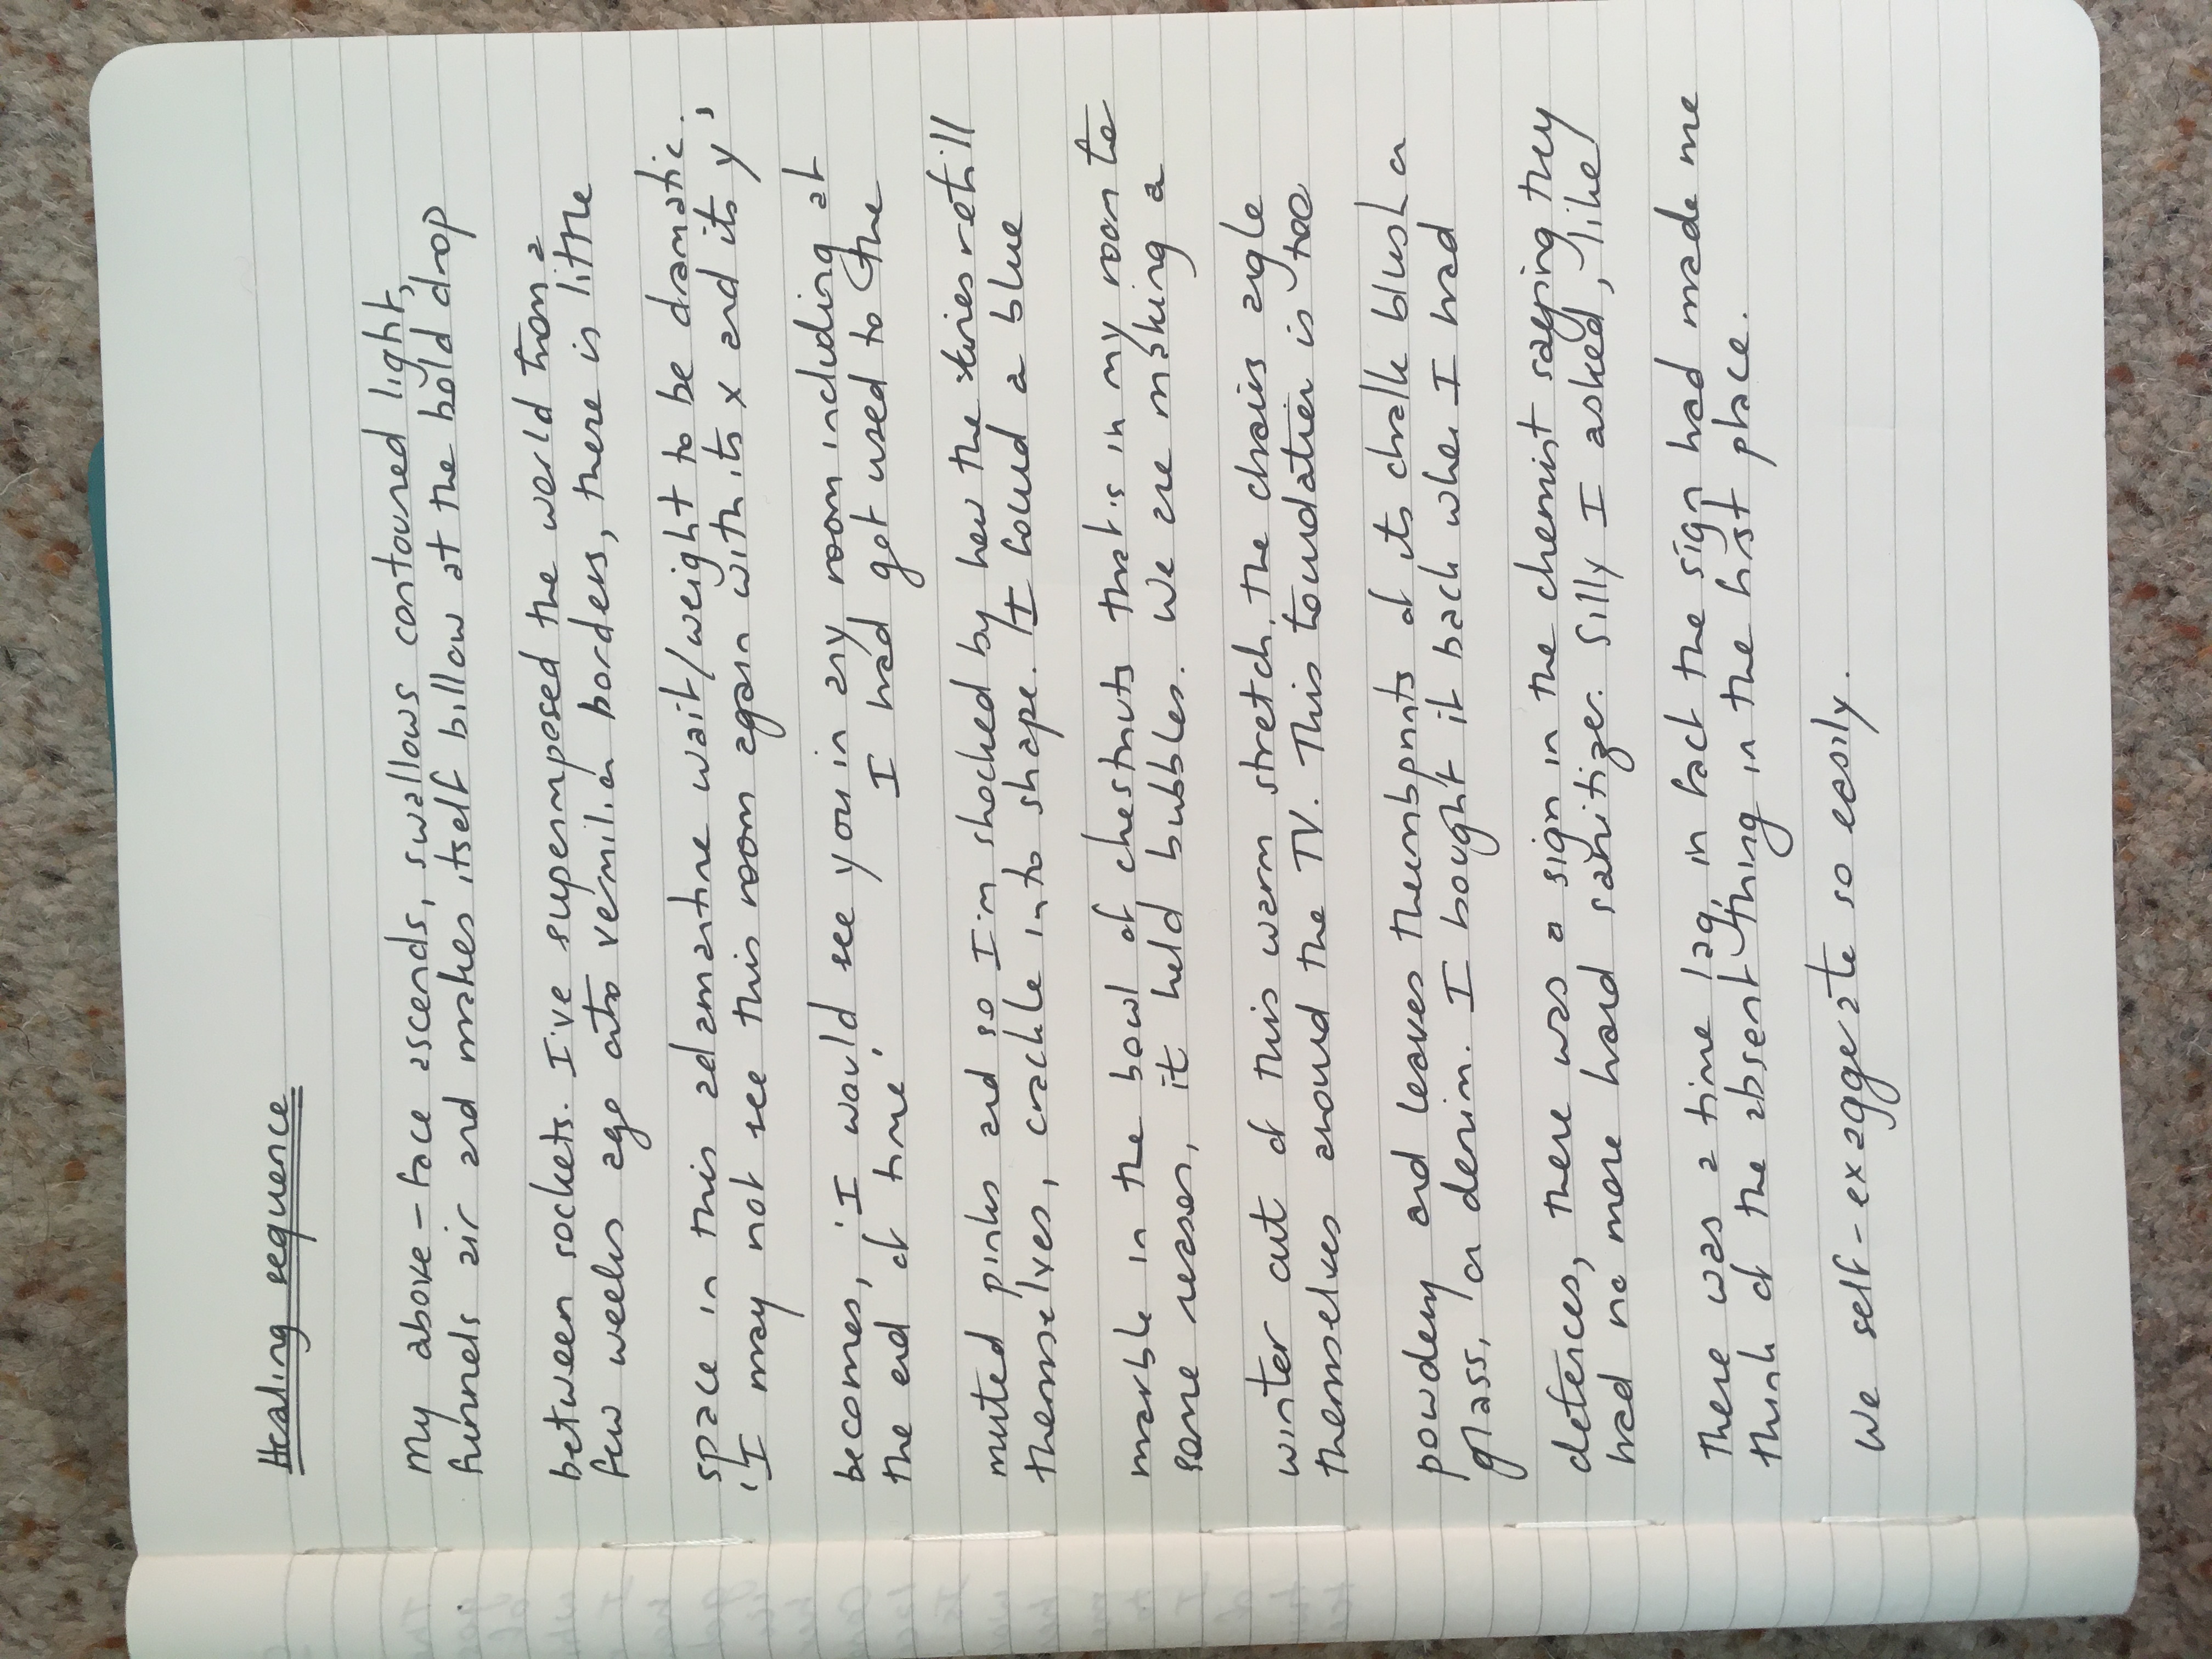 Healing sequence
My above-face ascends, swallows contoured light,
funnels air and makes itself billow at the bold drop
between sockets. I've superimposed the world from a
few weeks ago onto vermilion borders, there is little
space in this adamantine wait/weight to be dramatic.
'I may not see this room again with its x and its y'
becomes, 'I would see you in any room including at
the end of time' I had got used to the
muted pinks and so I'm shocked by how the skies refill
themselves, crackle into shape. I found a blue
marble in the bowl of chestnuts that's in my room for
some reason, it held bubbles. We are making a
winter out of this warm stretch. The chairs angle
themselves around the TV. This foundation is too
powdery and leaves thumbprints of its chalk blush on
glass, on denim. I bought it back when I had
defences, there was a sign in the chemist saying they
had no more hand sanitizer. Silly I asked, like
there was a time lag, in fact the sign had made me
think of the absent thing in the first place.
We self-exaggerate so easily.